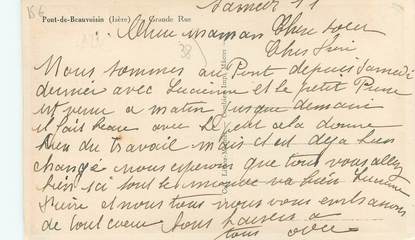 Samedi 11
Pont-de-Beauvoisin (Isère) Grande Rue
Chère maman Chère soeur
38
Cher frère
Nous sommes au Pont depuis Samedi
dernier avec Lucienne et le petit Pierre
est venu ce matin jusque demain
il fait beau avec le petit cela donne
bien du travail mais il est déjà bien
changé nous espérons que tous vous allez
bien ici tout le monde va bien Lucienne
Pierre et nous tous nous vous embrassons
de tout coeur bons baisers a
tous